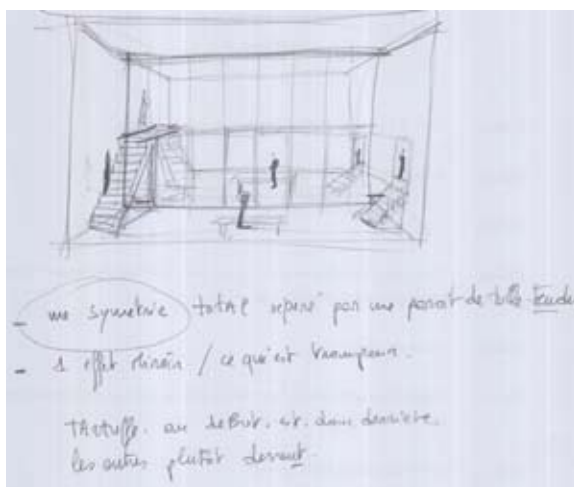 - une symetrie total séparé par une paroi de tulle tendu
- 1 effet miroir / ce qui est trompeur.
TArtuffe. au debut. est. donc derriere.
les autres plutôt devant.